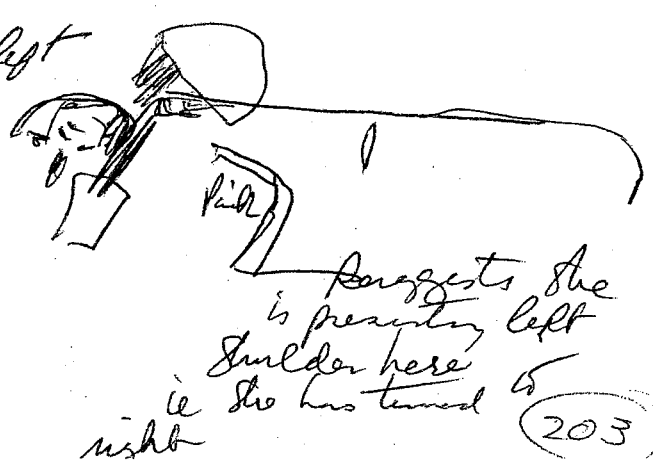 left
Pink
suggests she
is presenting left
shoulder here
ie she has turned to
right
203